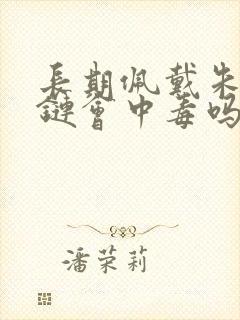 長期佩戴朱
鏈會中毒吗
潘荣莉